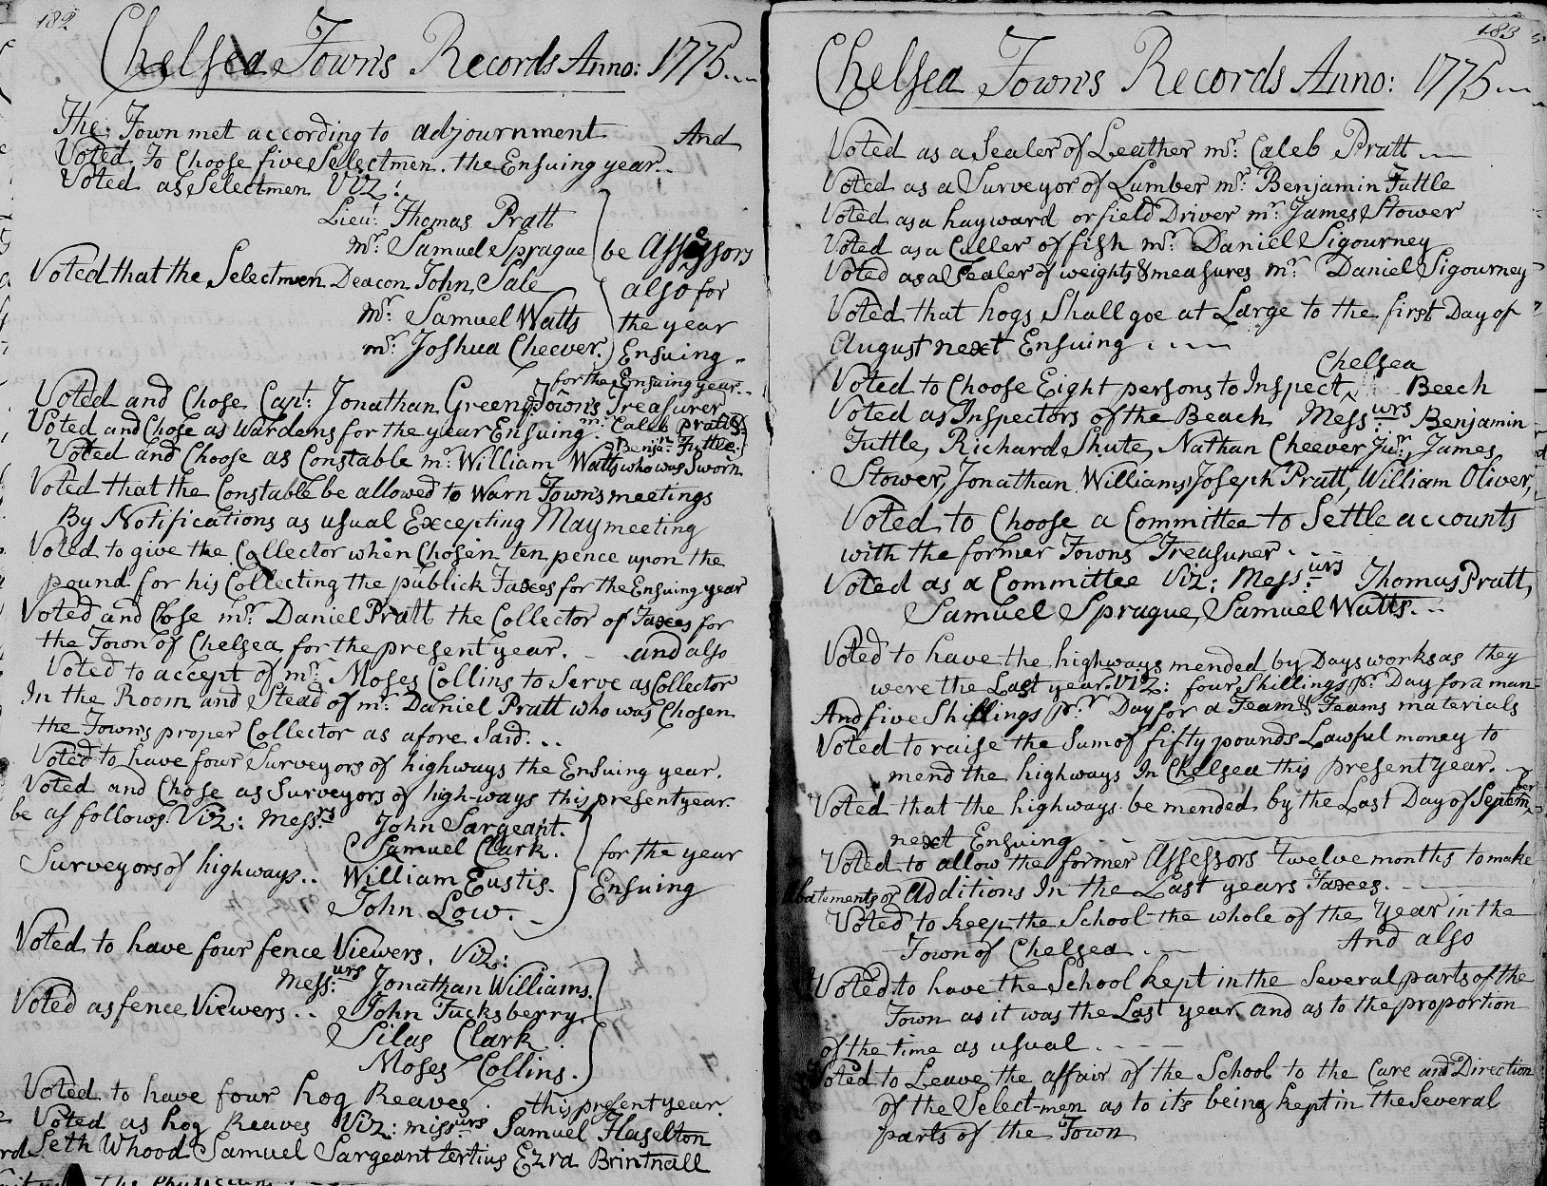 182
Chelsea Town's Records Anno: 1775.
The Town met according to adjournment And
Voted To Choose five Selectmen the Ensuing year..
Voted as Selectmen Viz:
Lieut: Thomas Pratt
mr. Samuel Sprague be Assessors
Voted that the Selectmen Deacon John Sale also for
mr. Samuel Watts the year
mr. Joshua Cheever. Ensuing
for the Ensuing year..
Voted and Chose Capt: Jonathan Green Town's Treasurer
Voted and Chose as Wardens for the year Ensuing mr. Caleb Pratt &
Benjn. Tuttle.
Voted and Choose as Constable mr. William Watts who was Sworn
Voted that the Constable be allowed to Warn Towns meetings
By Notifications as usual Excepting May meeting
Voted to give the Collector when Chosen ten pence upon the
pound for his Collecting the publick Taxes for the Ensuing year
Voted and Chose mr. Daniel Pratt the Collector of Taxes for
the Town of Chelsea for the present year. and also
Voted to accept of mr. Moses Collins to Serve as Collector
In the Room and Stead of mr. Daniel Pratt who was Chosen
the Towns proper Collector as afore Said...
Voted to have four Surveyors of highways the Ensuing year.
Voted and Chose as Surveyors of high-ways this present year.
be as follows Viz: Messrs John Sargeant.
Samuel Clark. for the year
Surveyors of highways.. William Eustis. Ensuing
John Low.
Voted to have four fence Viewers. Viz:
Mess:urs Jonathan Williams.
Voted as fence Viewers.. John Tucksberry
Silas Clark.
Moses Collins.
Voted to have four hog Reaves this present year.
Voted as hog Reaves Viz: missurs Samuel Haselton
Seth Whood Samuel Sargeant tertius Ezra Brintnall
183
Chelsea Town's Records Anno: 1775
Voted as a Sealer of Leather mr. Caleb Pratt
Voted as a Surveyor of Lumber mr. Benjamin Tuttle
Voted as a hayward or field Driver mr. James Stower
Voted as a Culler of fish mr. Daniel Sigourney
Voted as a Sealer of weights & measures mr. Daniel Sigourney
Voted that hogs Shall goe at Large to the first Day of
August next Ensuing
Chelsea
Voted to Choose Eight persons to Inspect Beech
Voted as Inspectors of the Beach Mess:urs Benjamin
Tuttle, Richard Shute, Nathan Cheever Junr. James
Stower, Jonathan Williams, Joseph Pratt, William Oliver,
Voted to Choose a Committee to Settle accounts
with the former Towns Treasurer
Voted as a Committee Viz: Mess:urs Thomas Pratt,
Samuel Sprague, Samuel Watts...
Voted to have the highways mended by Days works as they
were the Last year. Viz: four Shillings pr. Day for a man
And five Shillings pr. Day for a Team & Teams materials
Voted to raise the Sum of fifty pounds Lawful money to
mend the highways In Chelsea this present year.
Voted that the highways be mended by the Last Day of September
next Ensuing
Voted to allow the former Assessors Twelve months to make
Abatements or additions In the Last years Taxes.
Voted to keep the School the whole of the Year in the
Town of Chelsea And also
Voted to have the School kept in the Several parts of the
Town as it was the Last year and as to the proportion
of the time as usual
Voted to Leave the affair of the School to the Care and Direction
of the Select-men as to its being kept in the Several
parts of the Town